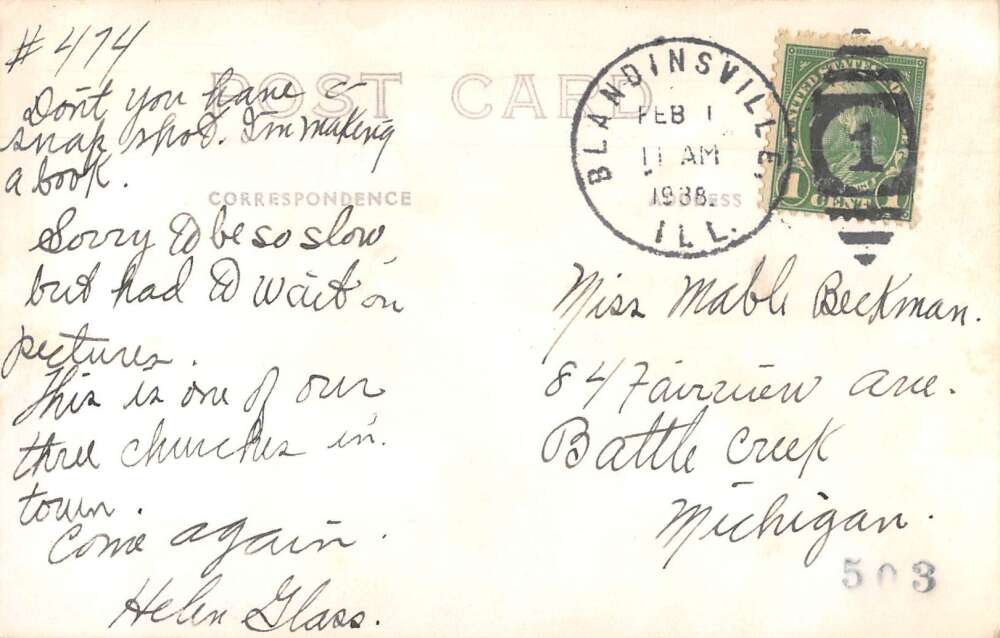 # 474
Don't you have a
snap shot. I'm making
a book.
POST CARD
CORRESPONDENCE
ADDRESS
Sorry to be so slow
but had to wait on
pictures.
This is one of our
three churches in.
town.
Come again.
Helen Glass.
BLANDINSVILLE,
FEB 1
11 AM
1938
ILL.
UNITED STATES OF
1 CENT 1
1
Miss Mable Beckman.
84 Fairview Ave.
Battle Creek
Michigan.
503